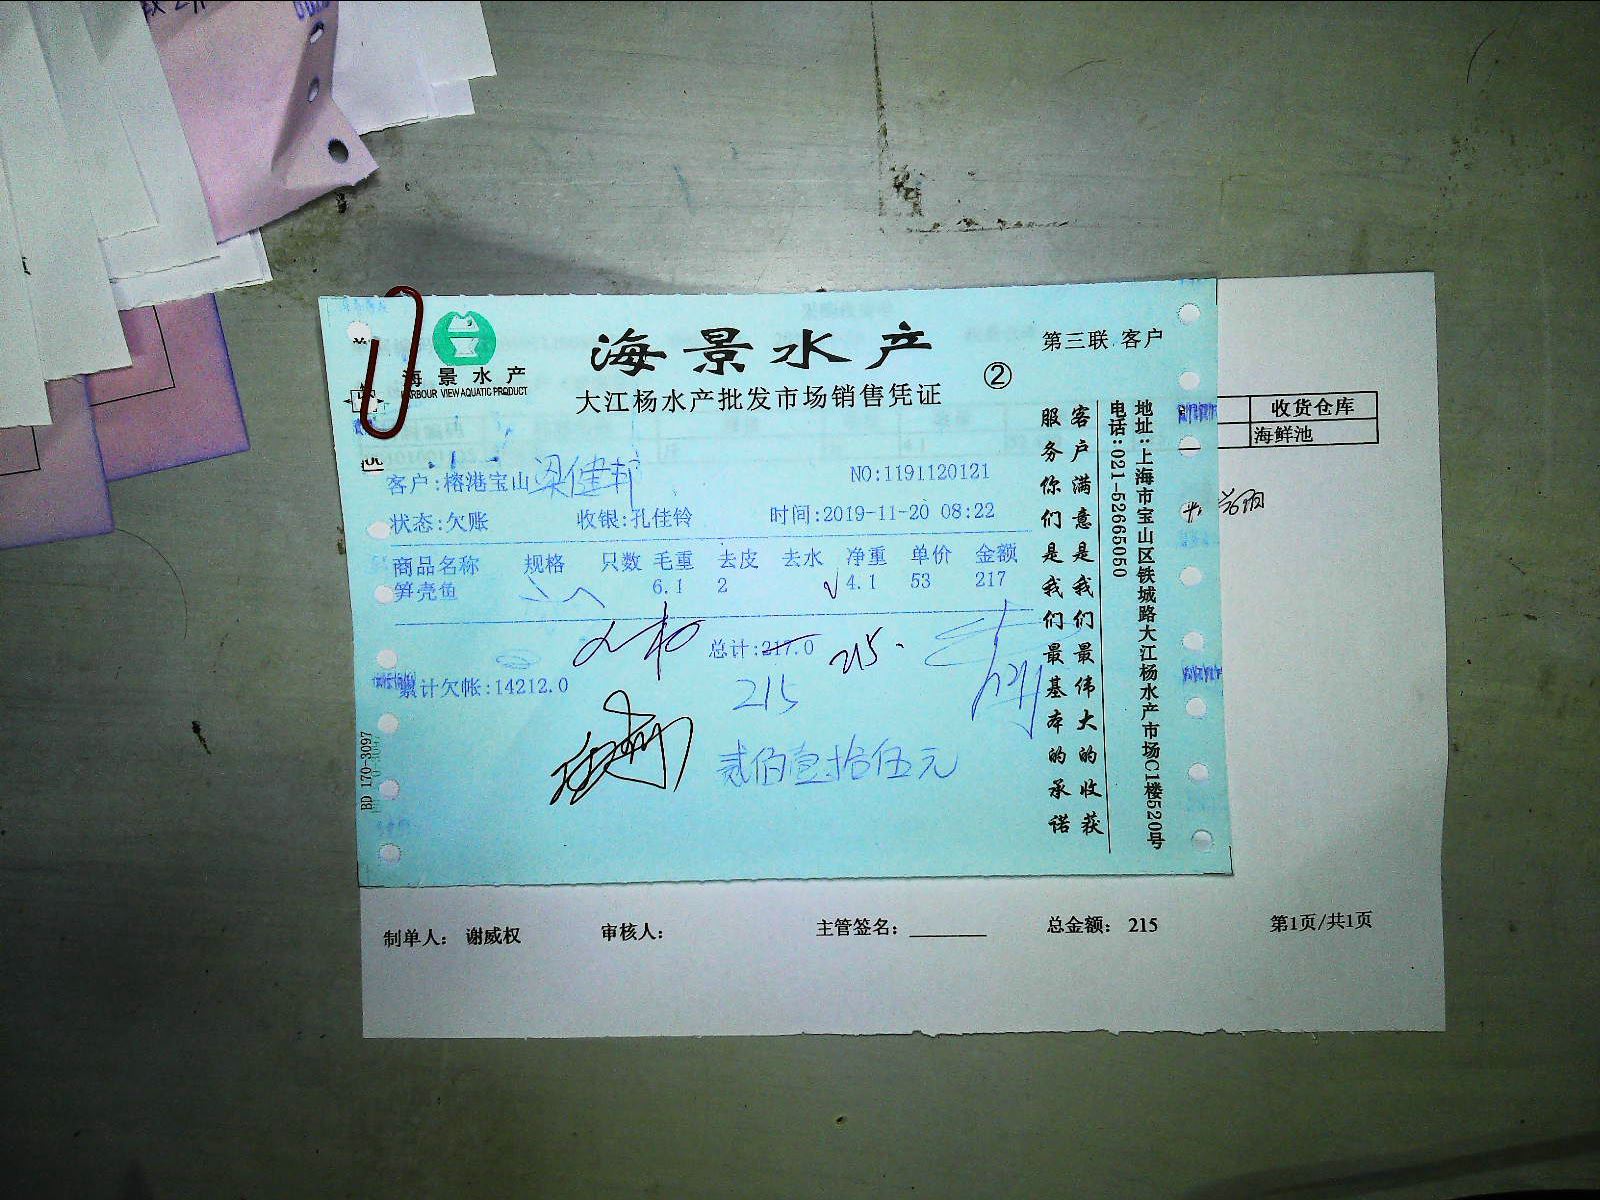 海景水产
HARBOUR VIEW AQUATIC PRODUCT
海景水产
大江杨水产批发市场销售凭证
②
第三联 客户
客户:榕港宝山 梁健邦
NO:1191120121
状态:欠账 收银:孔佳铃 时间:2019-11-20 08:22
商品名称 规格 只数 毛重 去皮 去水 净重 单价 金额
笋壳鱼 6.1 2 4.1 53 217
总计:217.0 215.
累计欠帐:14212.0
215
贰佰壹拾伍元
客户满意是我们最伟大的收获
服务你们是我们最基本的承诺
地址:上海市宝山区铁城路大江杨水产市场C1楼520号
电话:021-52665050
BD 170-3097
收货仓库
海鲜池
制单人: 谢威权 审核人: 主管签名: 总金额: 215 第1页/共1页